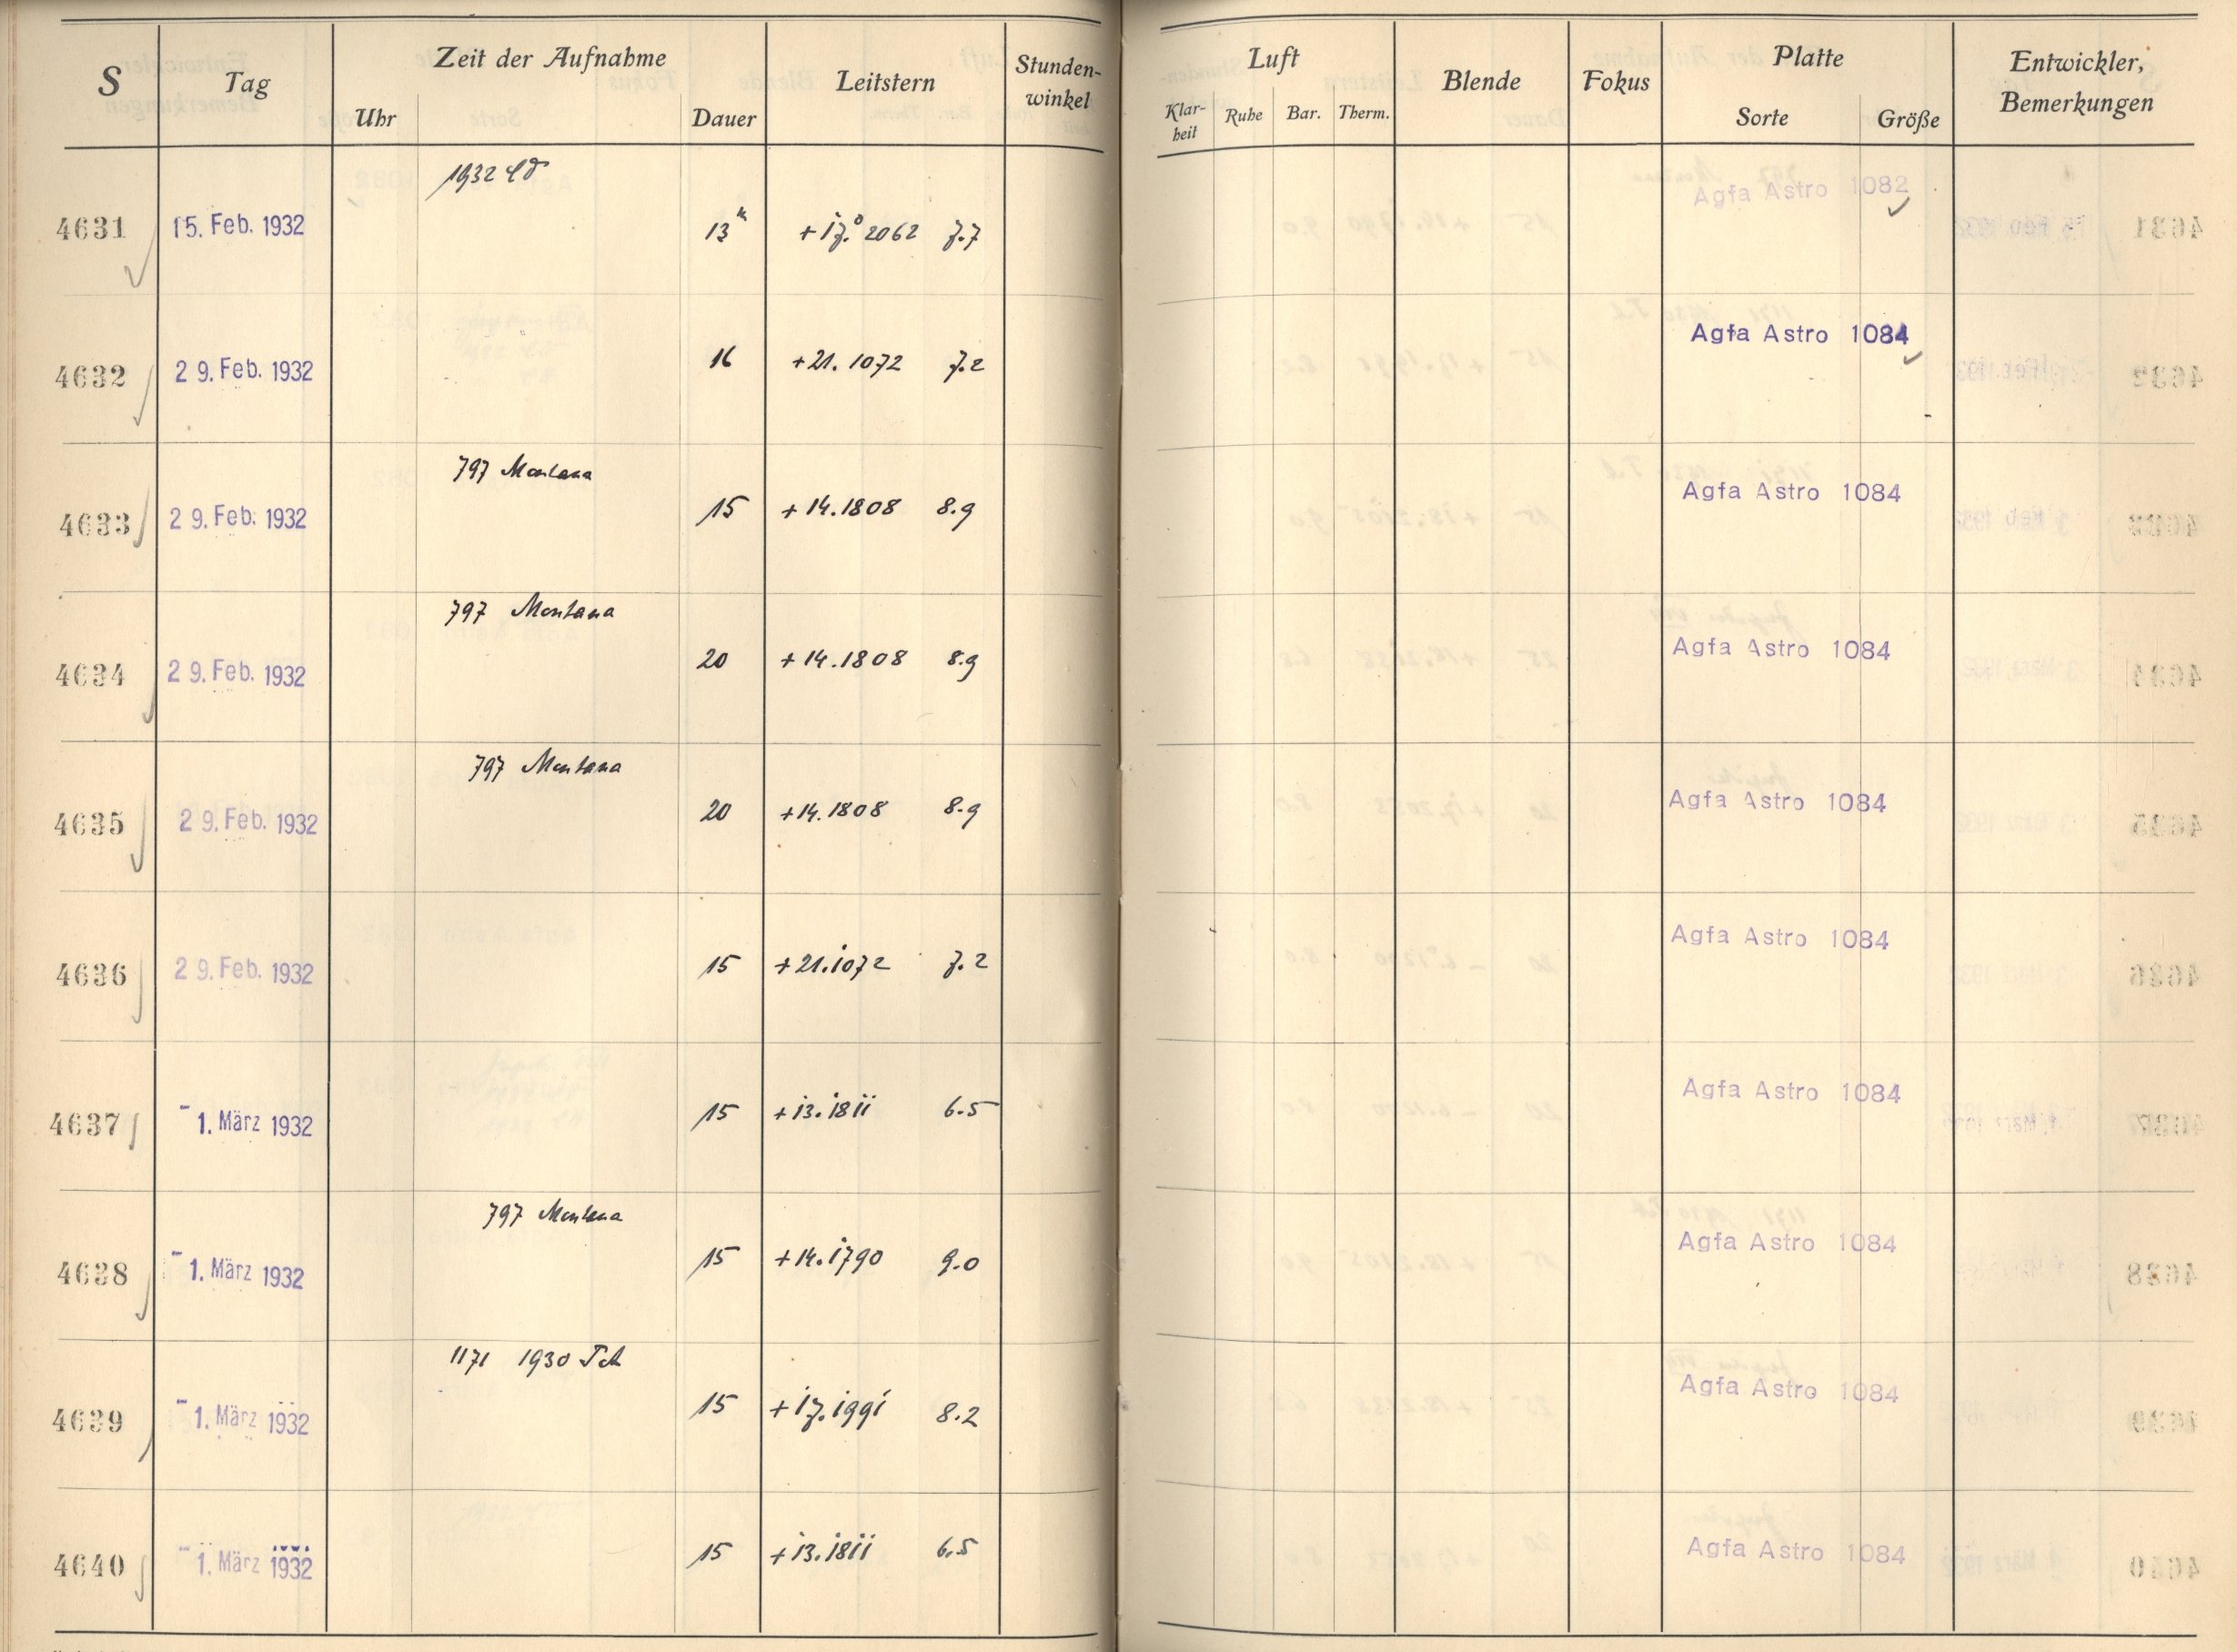 S Tag Zeit der Aufnahme Leitstern Stunden-winkel Luft Blende Fokus Platte Entwickler, Bemerkungen
Uhr Dauer Klar-heit Ruhe Bar. Therm. Sorte Größe
1932
4631 15. Feb. 1932 13ᵐ +17.° 2062 7.7 Agfa Astro 1082
4632 29. Feb. 1932 16 +21. 1072 7.2 Agfa Astro 1084
797 Montana
4633 29. Feb. 1932 15 +14.1808 8.9 Agfa Astro 1084
797 Montana
4634 29. Feb. 1932 20 +14.1808 8.9 Agfa Astro 1084
797 Montana
4635 29. Feb. 1932 20 +14.1808 8.9 Agfa Astro 1084
4636 29. Feb. 1932 15 +21.1072 7.2 Agfa Astro 1084
4637 -1. März 1932 15 +13.1811 6.5 Agfa Astro 1084
797 Montana
4638 -1. März 1932 15 +14.1790 9.0 Agfa Astro 1084
1171 1930
4639 -1. März 1932 15 +17.1991 8.2 Agfa Astro 1084
4640 -1. März 1932 15 +13.1811 6.5 Agfa Astro 1084